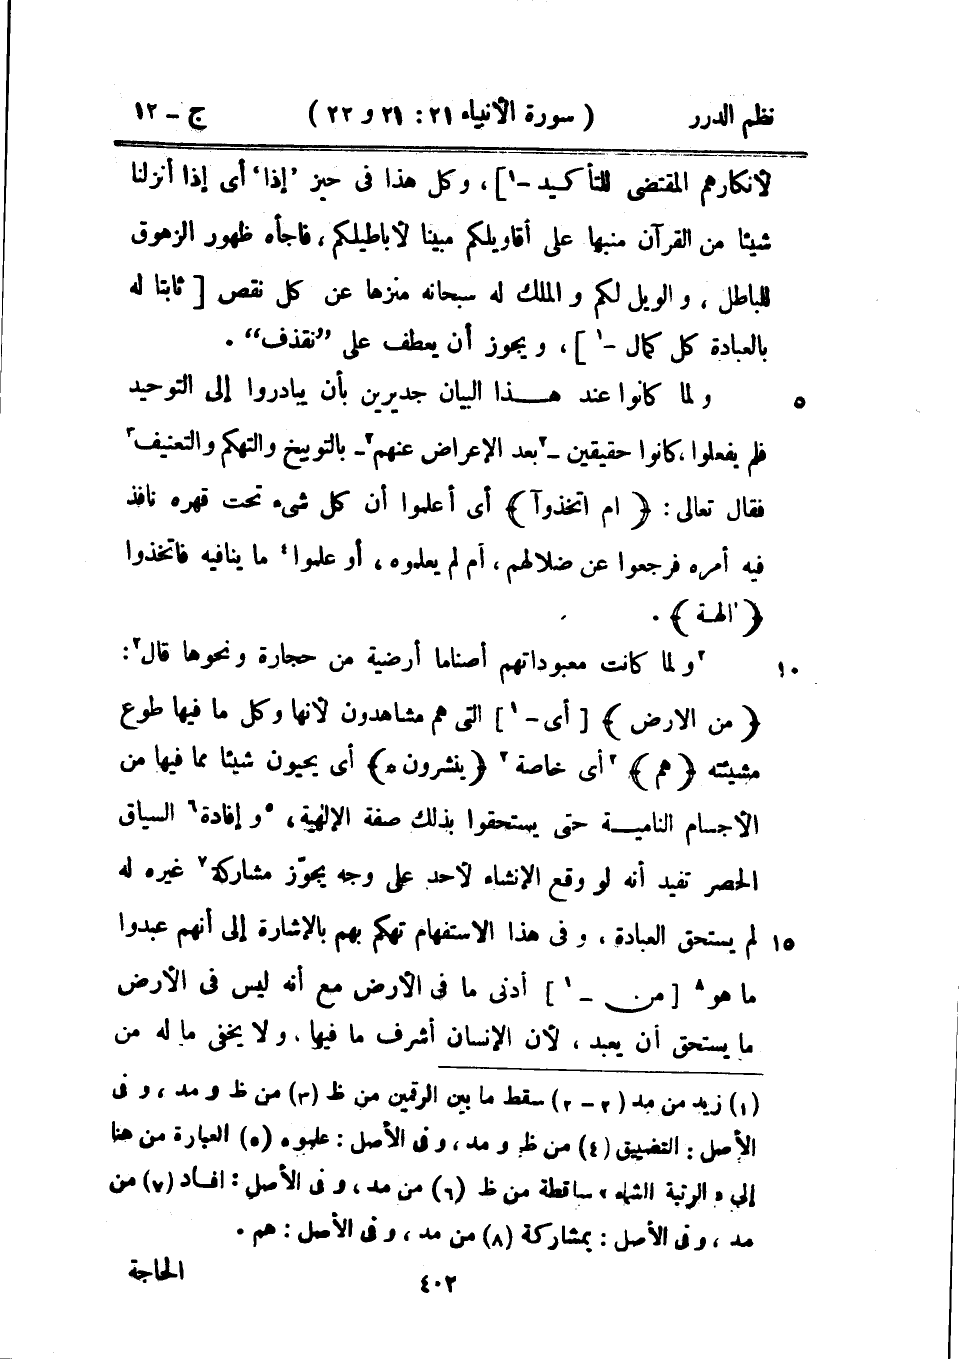 نظم الدرر ( سورة الأنبياء ٢١ : ٢١ و ٢٢ ) ج - ١٢
لأنكارهم المقتضى للتأكيد -١] ، وكل هذا فى حيز ’إذا‘ أى إذا أنزلنا
شيئا من القرآن منبها على أقاويلكم مبينا لأباطيلكم ، فاجأه ظهور الزهوق
للباطل ، و الويل لكم و الملك له سبحانه منزها عن كل نقص [ ثابتا له
بالعبادة كل كمال -١ ] ، و يجوز أن يعطف على ’’نقذف‘‘ .
٥ و لما كانوا عند هـذا البيان جديرين بأن يبادروا إلى التوحيد
فلم يفعلوا ، كانوا حقيقين -٢بعد الإعراض عنهم٢- بالتوبيخ و التهكم و التعنيف٣
فقال تعالى : ﴿ ام اتخذوآ ﴾ أى أعلموا أن كل شىء تحت قهره نافذ
فيه أمره فرجعوا عن ضلالهم ، أم لم يعلموه ، أو علموا٤ ما ينافيه فاتخذوا
﴿ الهة ﴾ .
١٠ ٢و لما كانت معبوداتهم أصناما أرضية من حجارة و نحوها قال٢ :
﴿ من الارض ﴾ [ أى -١ ] التى هم مشاهدون لأنها وكل ما فيها طوع
مشيئته ﴿ هم ﴾ ٢أى خاصة٢ ﴿ ينشرون ه ﴾ أى يحيون شيئا مما فيها من
الأجسام الناميـة حتى يستحقوا بذلك صفة الإلهية ، ٥و إفادة٦ السياق
الحصر تفيد أنه لو وقع الإنشاء لأحد على وجه يجوّز مشاركة٧ غيره له
١٥ لم يستحق العبادة ، و فى هذا الاستفهام تهكم بهم بالإشارة إلى أنهم عبدوا
ما هو٨ [ من -١ ] أدنى ما فى الأرض مع أنه ليس فى الأرض
ما يستحق أن يعبد ، لأن الإنسان أشرف ما فيها . و لا يخفى ما له من
(١) زيد من مد (٢ - ٢) سقط ما بين الرقمين من ظ (٣) من ظ و مد ، و فى
الأصل : التضييق (٤) من ظ و مد ، و فى الأصل : علموه (٥) العبارة من هنا
إلى « الرتبة الشماء » ساقطة من ظ (٦) من مد ، و فى الأصل : افـاد (٧) من
مد ، و فى الأصل : بمشاركة (٨) من مد ، و فى الأصل : هم .
الحاجة
٤٠٢